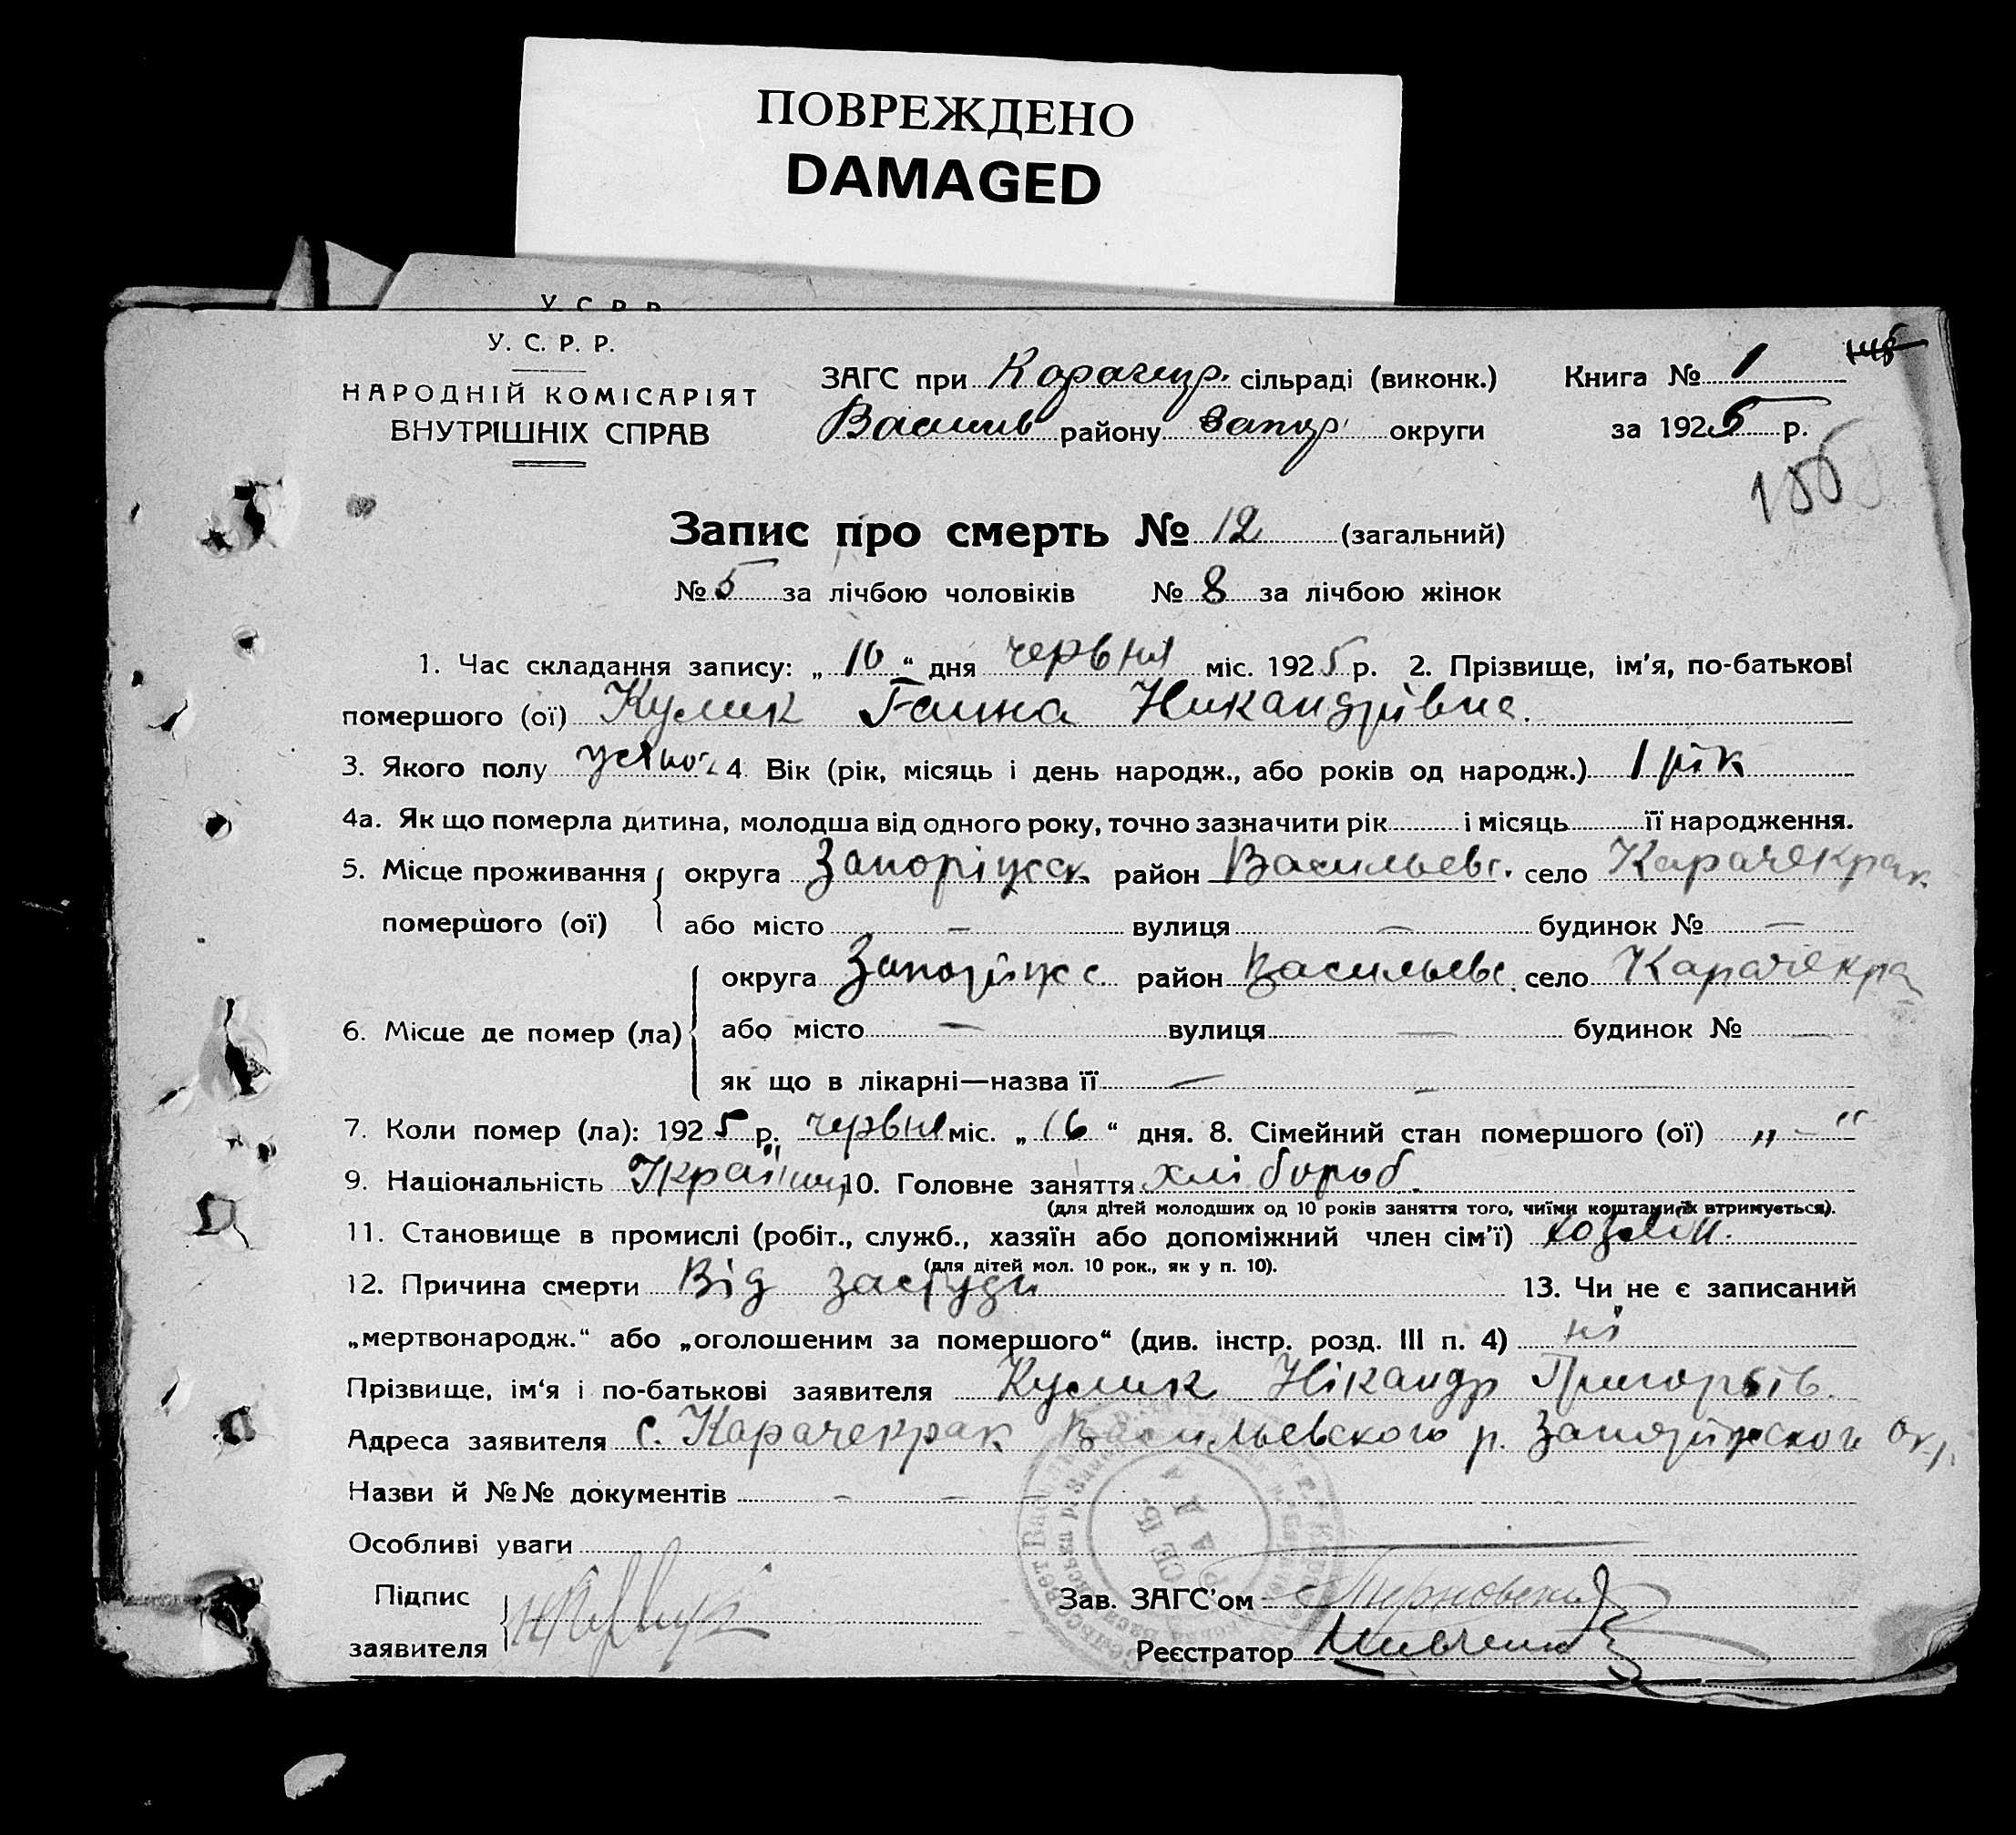 ПОВРЕЖДЕНО
DAMAGED
У. С. Р. Р.
У. С. Р. Р.
НАРОДНІЙ КОМІСАРІЯТ
ВНУТРІШНІХ СПРАВ
ЗАГС при Карачекр. сільраді (виконк.)
Васил району Запор округи
Книга № 1
за 1925 р.
146
156
Запис про смерть № 12 (загальний)
№ 5 за лічбою чоловіків № 8 за лічбою жінок
1. Час складання запису: „ 16 “ дня червня міс. 1925 р. 2. Прізвище, ім'я, по-батькові
помершого (ої) Кулик Ганна Никандрівна.
3. Якого полу 4. Вік (рік, місяць і день народж., або років од народж.) 1 рік
4а. Як що померла дитина, молодша від одного року, точно зазначити рік і місяць її народження.
5. Місце проживання помершого (ої) округа Запоріжск район Васильевс. село Карачекрак
або місто — вулиця — будинок № —
6. Місце де помер (ла) округа Запоріжс. район Васильевс. село Карачекра
або місто — вулиця — будинок № —
як що в лікарні—назва її —
7. Коли помер (ла): 1925 р. червня міс. „ 16 “ дня. 8. Сімейний стан помершого (ої) „ — “
9. Національність Україн 10. Головне заняття хлібороб.
(для дітей молодших од 10 років заняття того, чиїми коштами їх втримується).
11. Становище в промислі (робіт., служб., хазяїн або допоміжний член сім'ї) хозяїн.
(для дітей мол. 10 рок., як у п. 10).
12. Причина смерти Від застуди 13. Чи не є записаний
„мертвонародж.“ або „оголошеним за помершого“ (див. інстр. розд. III п. 4) ні
Прізвище, ім'я і по-батькові заявителя Кулик Нікандр Григорьів.
Адреса заявителя с. Карачекрак Васильевского р. Запоріжского окр.
Назви й №№ документів — —
Особливі уваги —
Підпис заявителя
Зав. ЗАГС'ом Терновский
Реєстратор Шевченко